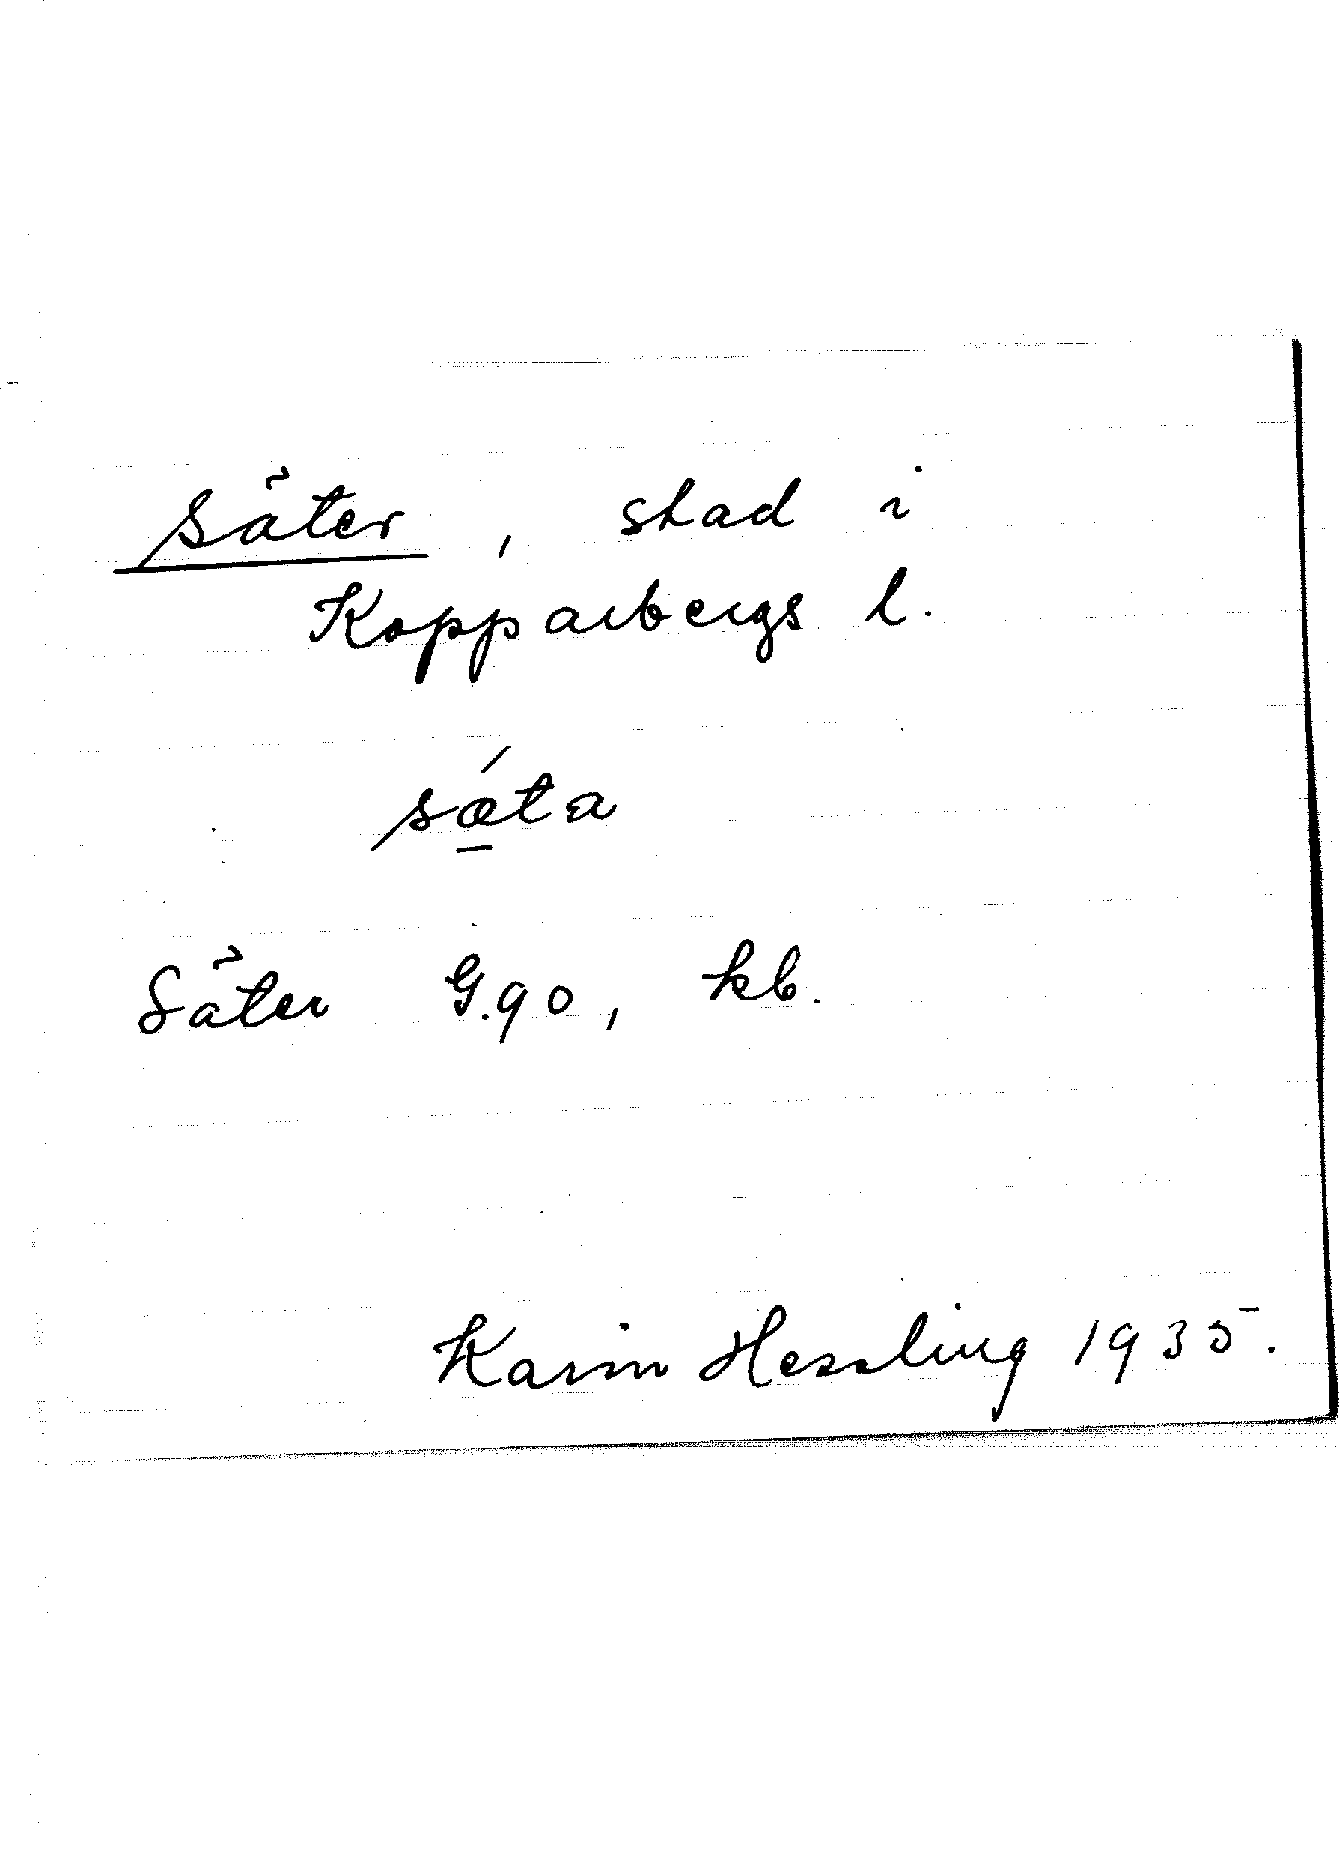 Säter, stad i
Kopparbergs l.
sǽta
Säter G.90, kb.
Karin Hessling 1935.